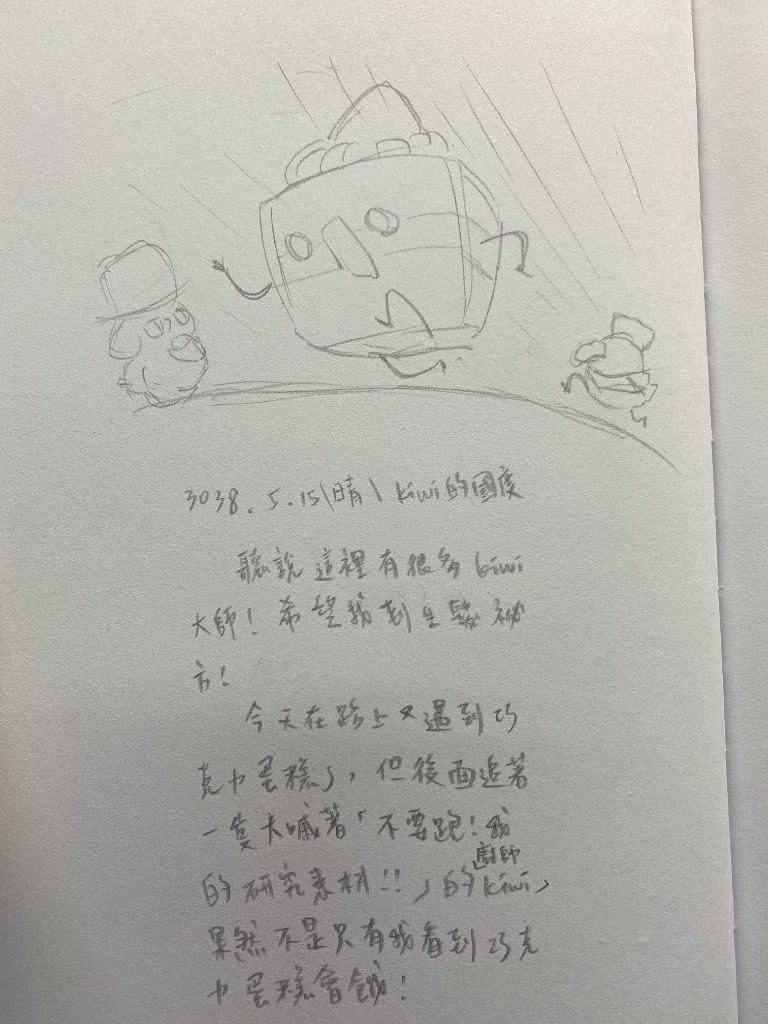 3038.5.15\晴\ kiwi的國度
聽說這裡有很多kiwi
大師!希望我到生髮祕
方!
今天在路上又遇到巧
克力蛋糕了,但後面追著
一隻大喊著「不要跑!我
的研究素材!!」的廚師kiwi,
果然不是只有我看到巧克
力蛋糕會餓!